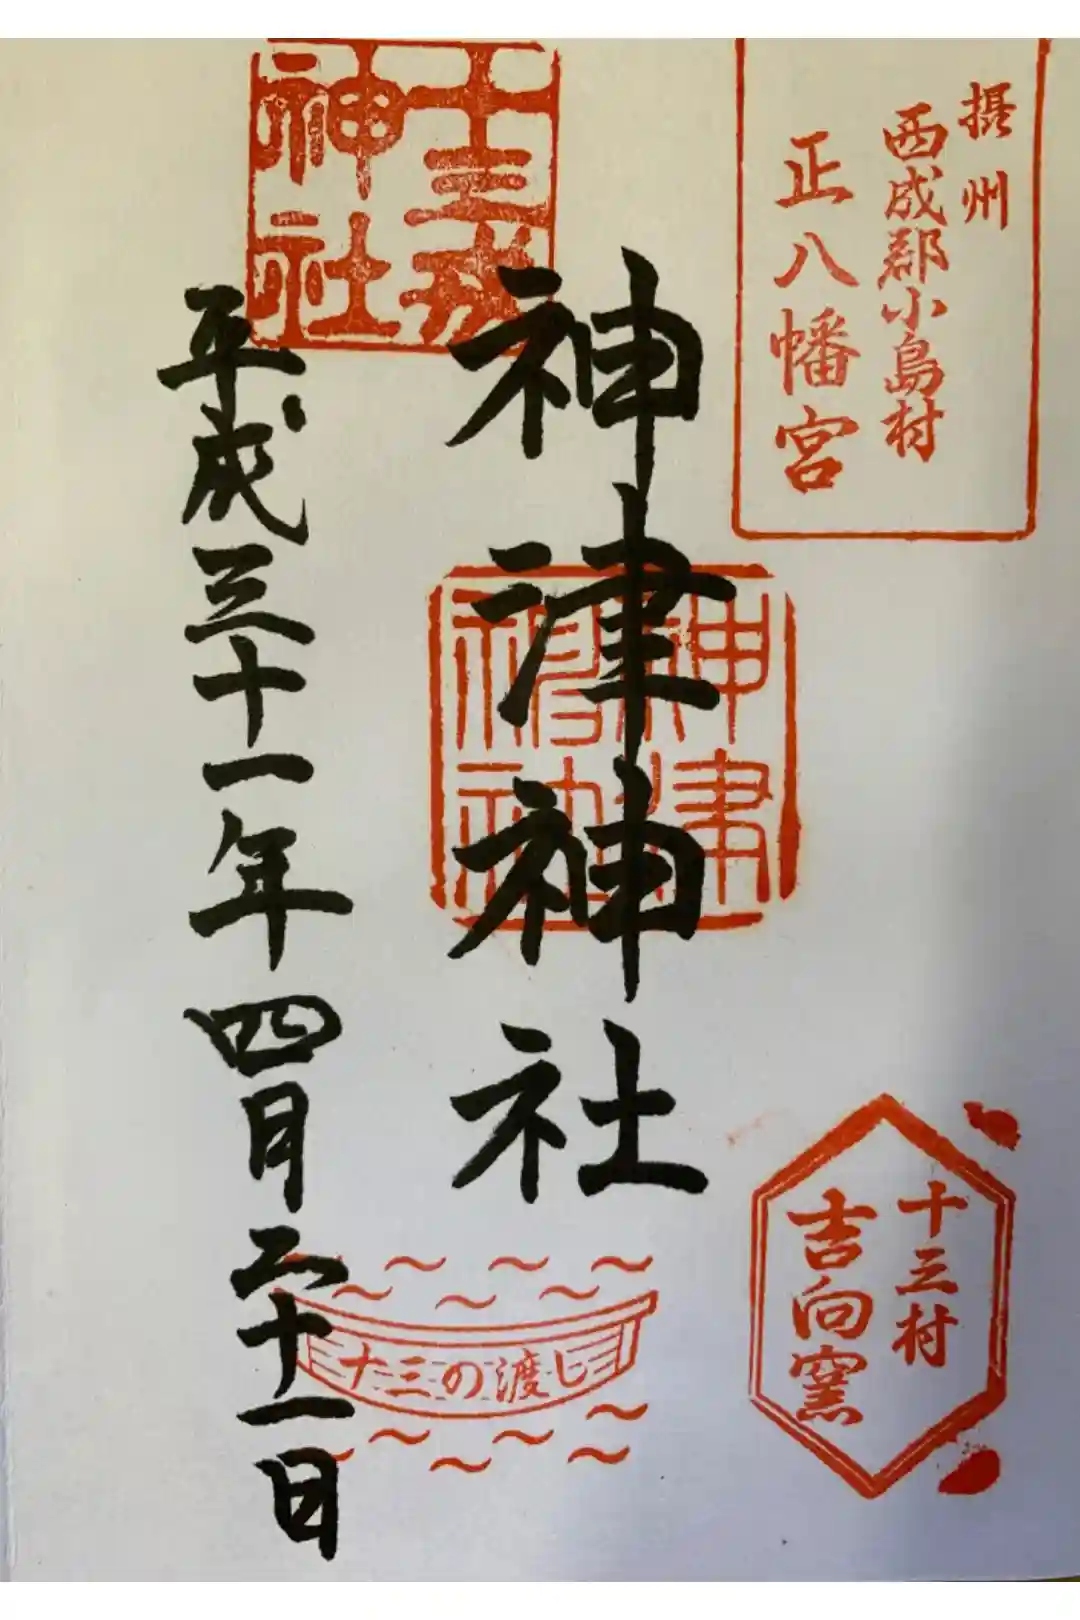 摂州
西成郡小島村
正八幡宮
十三村
吉向窯
神津神社
神津
神社
十三戎
神社
十三の渡し
平成三十一年四月二十一日